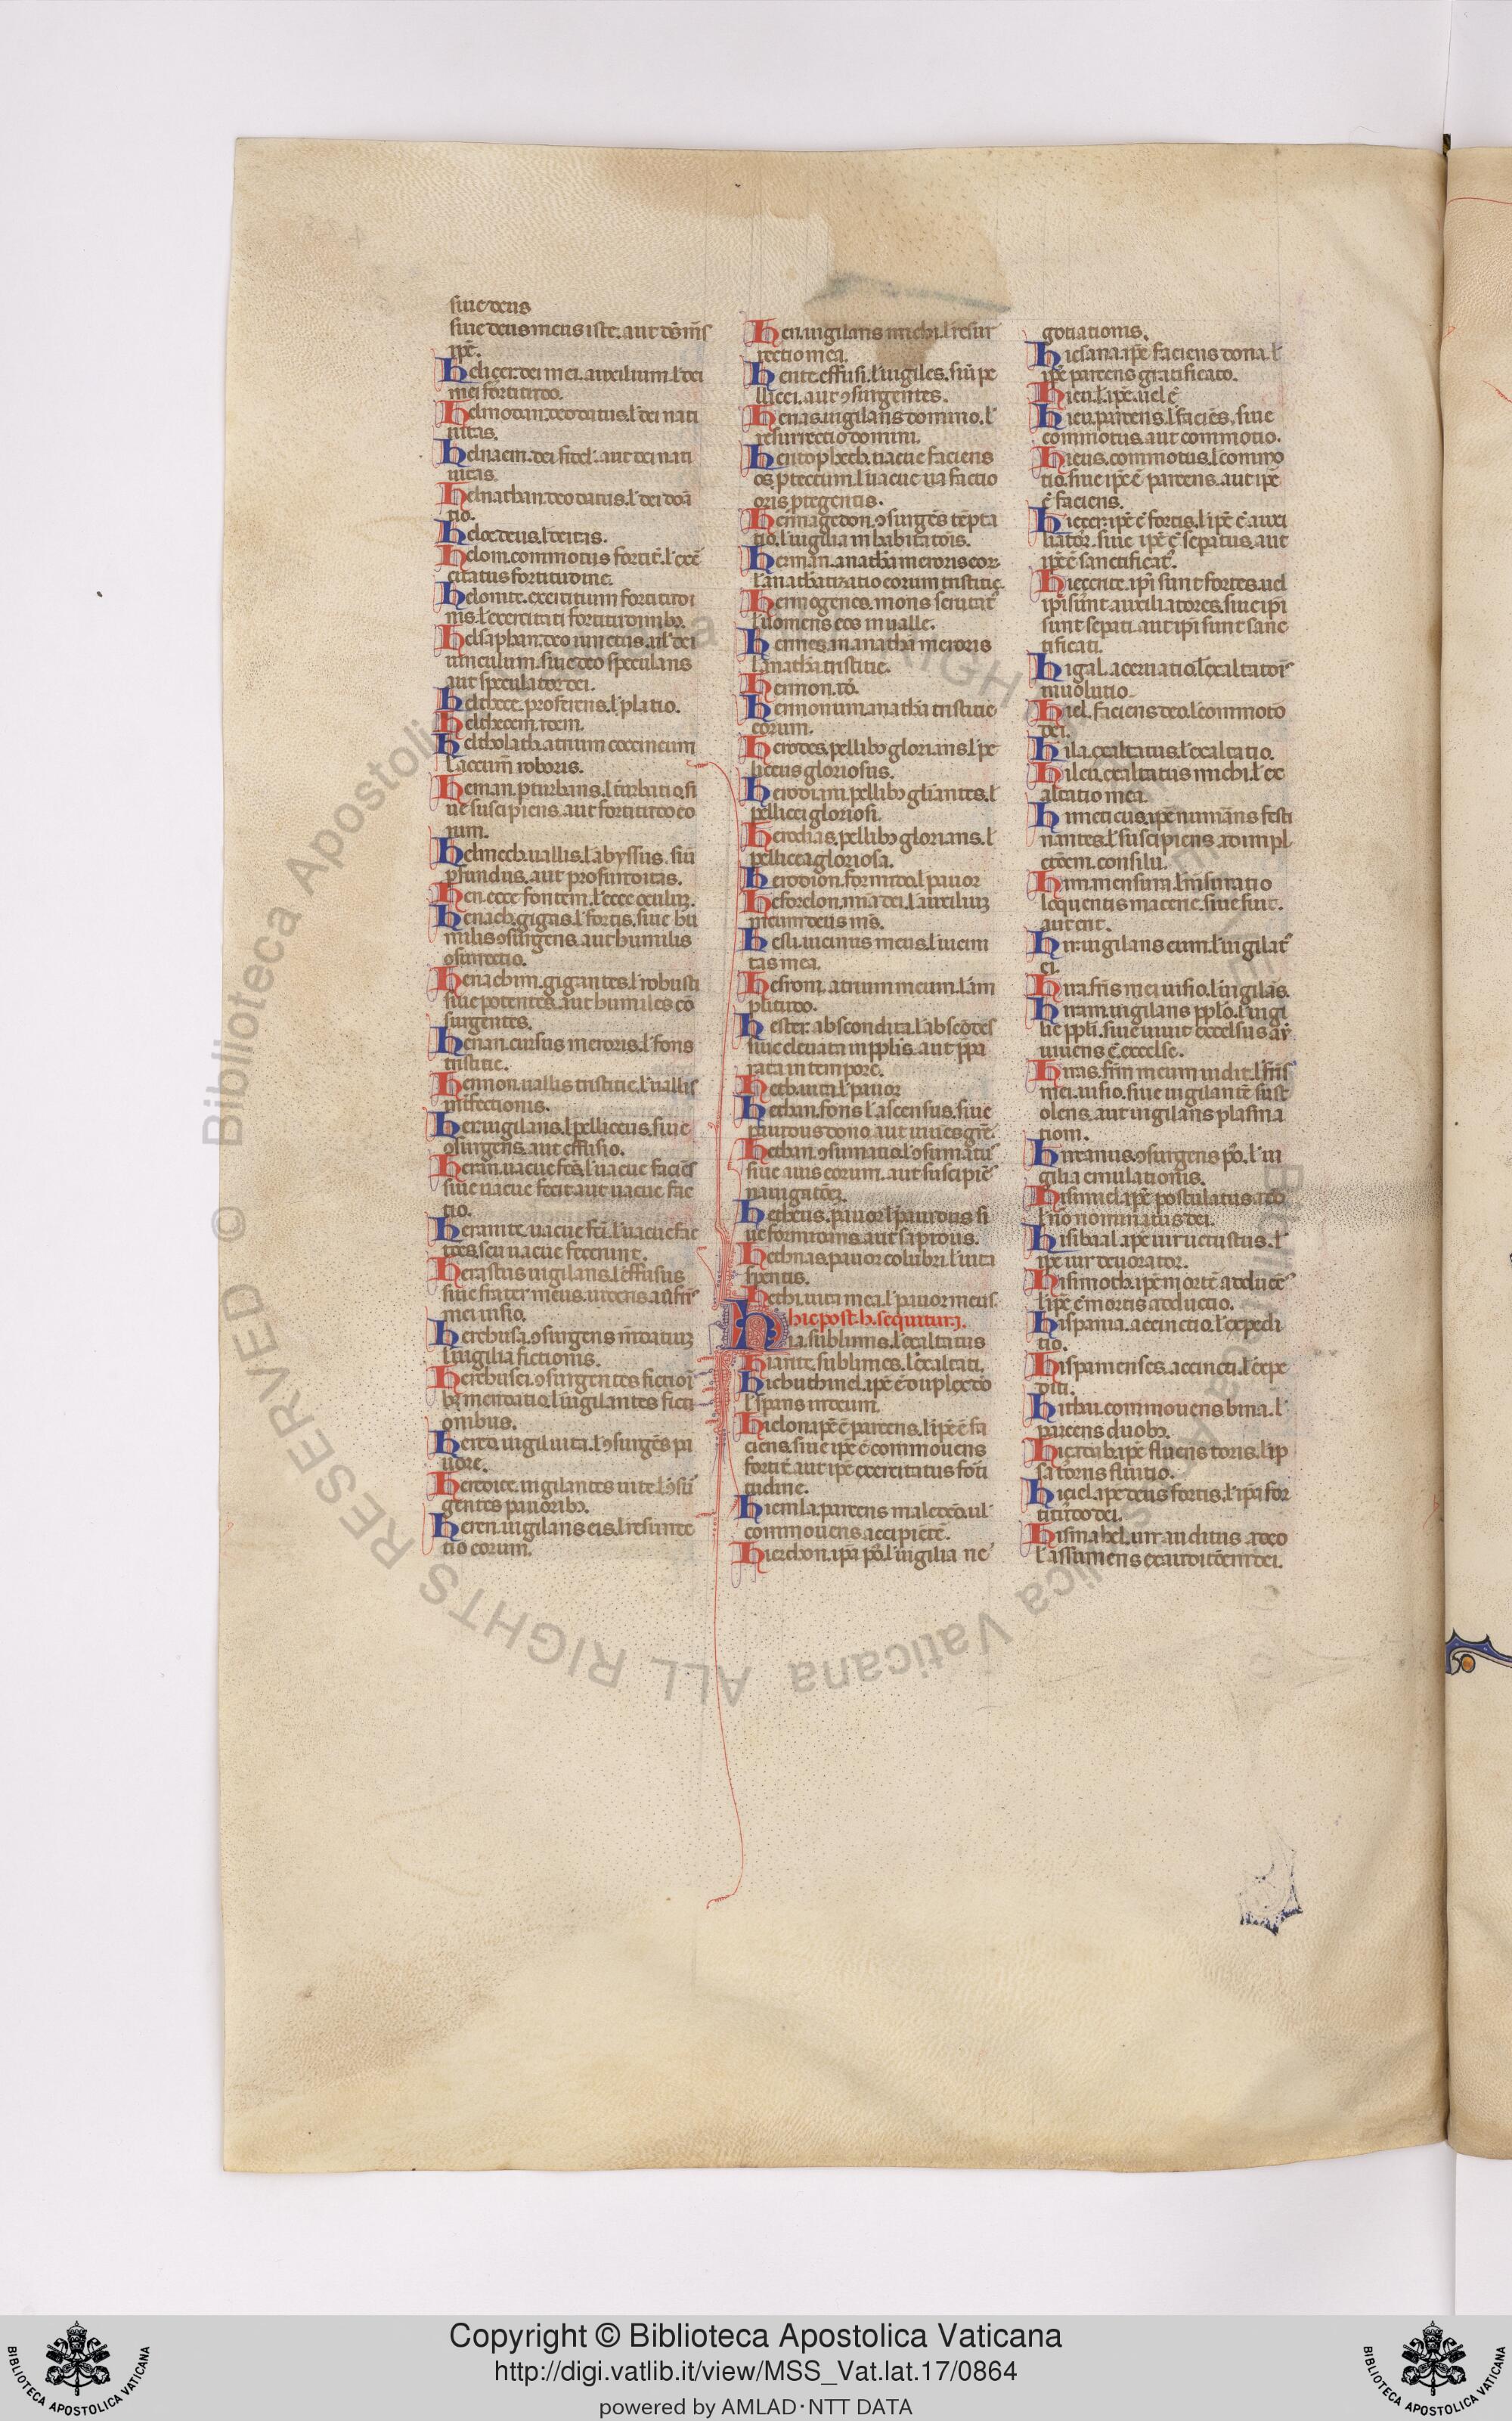 siue deus
siue deus meus iste. aut ds̄ ms̄
ip̄e.
Heliezer. dei mei auxilium. l' dei
mei fortitudo.
Helmodan. deo datus. l' dei nati
uitas.
Helnaem. dei fidel'. aut dei nati
uitas.
Helnathan. deo datus. l' dei dona
tio.
Heloe. deus. l' deitas.
Helom. commotus fortit̄. l' exer
citatus fortitudine.
Helonite. exercitium fortitudi
nis. l' exercitati fortitudinibꝫ.
Helsaphan. deo iunctus. ul' dei
uinculum. siue deo speculans
aut speculator dei.
Helthece. proficiens. l' platio.
Helthecem. idem.
Heltholath. atrium coccineum
l' accum̄ roboris.
Heman. pturbans. l' turbatio. si
ue suscipiens. aut fortitudo eo
rum.
Helmech. uallis. l' abyssus. siū
pfundus. aut profunditas.
Hen. ecce fontem. l' ecce oculuꝫ.
Henach. gigas. l' fortis. siue hu
milis ꝯsurgens. aut humilis
ꝯsurrectio.
Henachim. gigantes. l' robusti
siue potentes. aut humiles cō
surgentes.
Henan. cursus meroris. l' fons
tristitie.
Hennon. uallis tristitie. l' uallis
Her. uigilans. l' pelliceus. siue
ꝯsurgens. aut effusio.
Heran. uacue fcs̄. l' uacue faciēs
siue uacue fecit aut uacue fac
tio.
Heranite. uacue fci. l' uacue fac
siue frater meus. uidens. aū fris̄
mei uisio.
Herebusa. ꝯsurgens mendatiuꝫ
l' uigilia fictionis.
Herebusei. ꝯsurgentes fictioi
l' uigilantes ficti
onibus.
Hered. uigil uita. l' ꝯsurgēs pa
uore.
Heredite. uigilantes uite. l' ꝯsur
gentes pauoribꝫ.
Heren. uigilans eis. l' resurrec
tio eorum.
Heri. uigilans michi. l' resur
rectio mea.
Herite. effusi. l' uigiles. siū pe
llicei. aut ꝯsurgentes.
Herias. uigilans domino. l'
resurrectio domini.
os ptectum. l' uacue ua factio
oris ptegentis.
Hermagedon. ꝯsurgēs tēpta
tio. l' uigilia in habitatōis.
Herman. anathā meroris eor
l' anathatizatio eorum tristitie.
Hermogenes. mons scrutat̄
l' idomens eos in ualle.
anathā meroris
l' anathā tristitie.
Hermon. id.
Hermonum. anathā tristitie
eorum.
Herodes. pellibꝫ glorians. l' pe
lliceus gloriosus.
Herodiani. pellibꝫ gliantes. l'
pellicei gloriosi.
Herodias. pellibꝫ glorians. l'
pellicea gloriosa.
Herodion. formido. l' pauor
l' auxiliuꝫ
meum deus ms̄.
Hesli. uicinus meus. l' uicini
tas mea.
Hesrom. atrium meum. l' am
plitudo.
Hester. abscondita. l' abscōdēs
siue eleuata in pplis. aut ppa
rata in tempore.
Heth. uita. l' pauor
Hethan. fons. l' ascensus. siue
Hethan. ꝯsumatio. l' ꝯsumatū
siue auis eorum. aut suscipiēs
Hetheus. pauor. l' pauidus. si
ue formidans. aut stupidus.
Hethnas. pauor colubri. l' uita
spentis.
Hethi. uita mea. l' pauor meus.
hic post. h. sequitur. j.
Hia. sublimis. l' exaltatus
Hiante. sublimes. l' exaltati.
Hicbuthiuel. ipē ē duplex do
Hiclon. ipē ē pariens. l' ipē ē fa
ciens. siue ipē ē commouens
fortit̄. aut ipē exercitatus forti
tudine.
Hiemla. pariens maledco. ul'
commouens accipientē.
Hierebon. ipā po. l' uigilia ne
gotiationis.
Hiesana. ipē faciens dona. l'
ipē pariens gratificato.
Hieu. l' ipē. uel ē
Hieu. pariens. l' faciēs. siue
commotus. aut commotio.
Hieus. commotus. l' commo
tio. siue ipē ē pariens. aut ipē
ē faciens.
Hiezer. ipē ē fortis. l' ipē ē auxi
liator. siue ipē ē sepatus. aut
ipē ē sanctificat̄.
Hiezerite. ipi sunt fortes. uel
ipi sunt auxiliatores. siue ipi
sunt sepati. aut ipi sunt sanc
tificati.
Higal. aceruatio. l' exaltatōis
inuolutio.
Hiel. faciens deo. l' commoto
dei.
Hila. exaltatus. l' exaltatio.
Hileu. exaltatus michi. l' ex
altatio mea.
Himeticus. ipē numans festi
nantes. l' suscipiens. ad impl
etōem. consilii.
Hin. mensum. l' msuratio
l' equentis materie. siue fuit.
aut erit.
Hir. uigilans eum. l' uigilat̄
ei.
Hira. fris mei uisio. l' uigilās.
Hiram. uigilans pplo. l' uigi
lie ppli. siue uiuit excelsus. aut
uiuens ē excelse.
Hiras. frm meum uidit. l' fris
mei. uisio. siue uigilante sust
olens. aut uigilans plasma
tiom.
Hircanus. ꝯsurgens po. l' ui
gilia emulationis.
Hisimiel. ipē postulatus a deo
l' no nominatus dei.
Hisibaal. ipē uir uetustus. l'
ipē uir deuorator.
Hisimoth. ipē mortē adducēs
l' ipē ē mortis adductio.
Hispania. accinctio. l' expedi
tio.
Hispanienses. accincti. l' expe
diti.
Hithu. commouens bina. l'
pariens duobꝫ.
ipē fluens toris. l' ip
Hiziel. ipē deus fortis. l' ipā for
titudo dei.
Hismahel. uir auditus. a deo
l' assumens exauditōem dei.
Copyright © Biblioteca Apostolica Vaticana
http://digi.vatlib.it/view/MSS_Vat.lat.17/0864
powered by AMLAD·NTT DATA